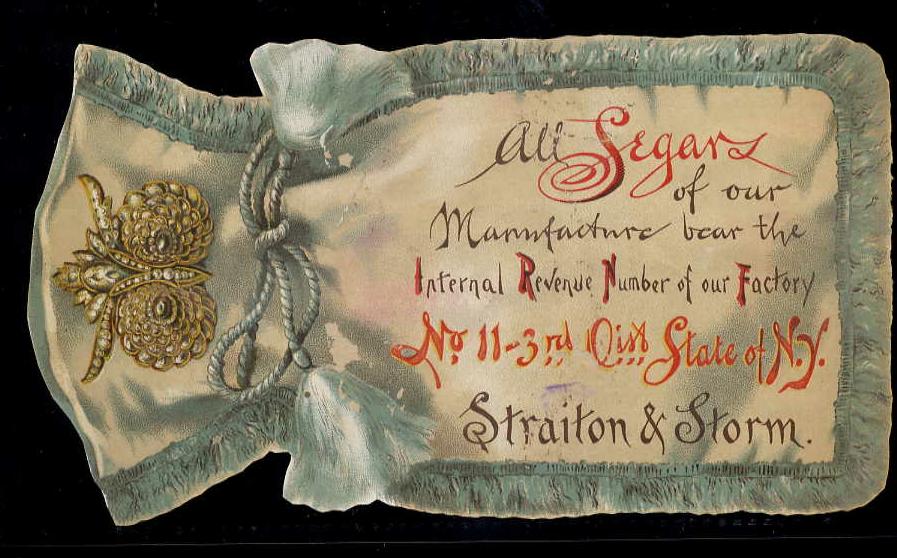 All Segars
of our
Manufacture bear the
Internal Revenue Number of our Factory
No. 11-3rd Dist State of N.Y.
Straiton & Storm.